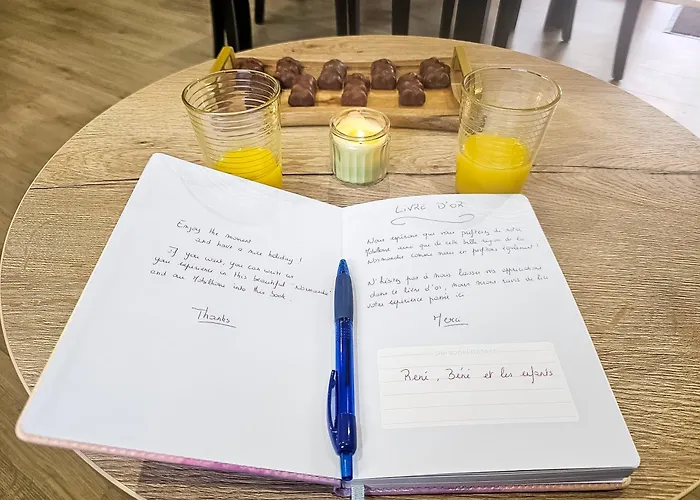 Enjoy the moment
and have a nice holiday!
If you want, you can write us
your experience in this beautiful "Normandie"
and our Mobilhome into this book.
Thanks
LIVRE D'OR
Nous espérons que vous profiterez de notre
Mobilhome ainsi que de cette belle région de la
Normandie comme nous en profitons également!
N'hésitez pas à nous laisser vos appréciations
dans ce livre d'or, nous serons ravis de lire
votre expérience passée ici.
Merci
René, Béné et les enfants